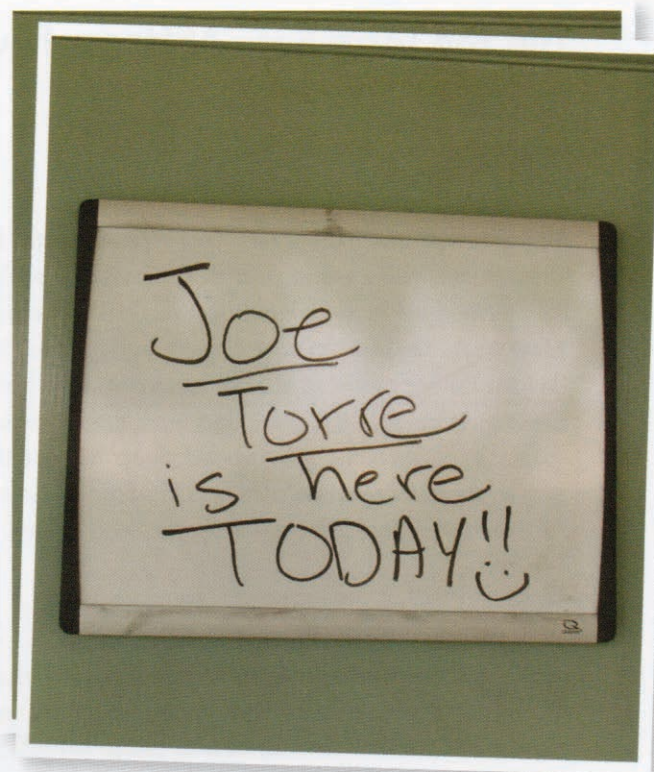 Joe
Torre
is here
TODAY!!
Q